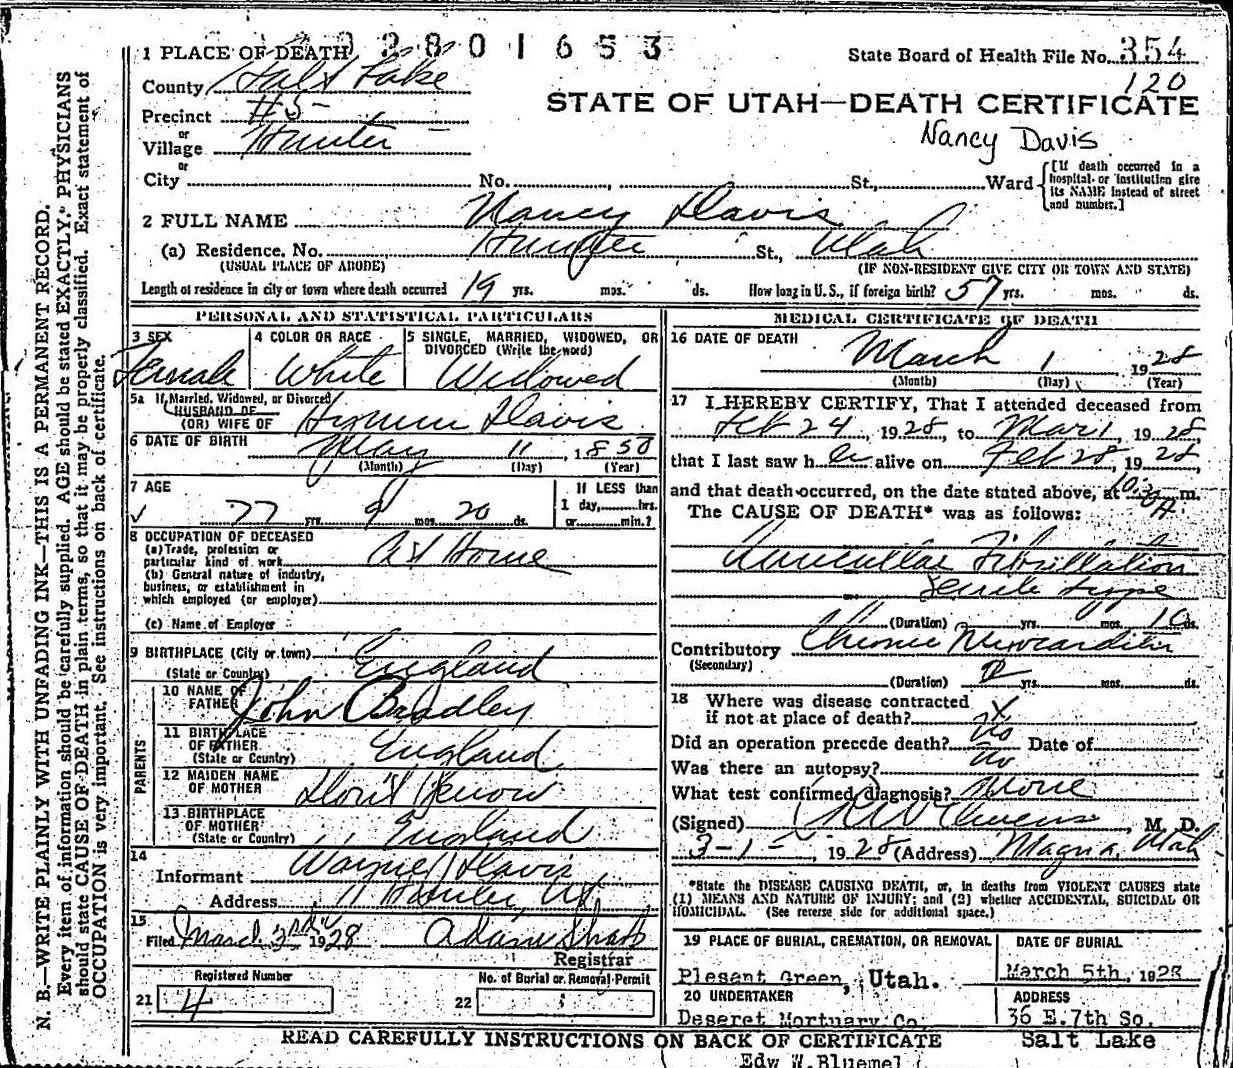 2801653
1 PLACE OF DEATH
State Board of Health File No. 354
120
County Salt Lake
STATE OF UTAH—DEATH CERTIFICATE
Precinct #5
Nancy Davis
or
Village Hunter
or
City No. , St., Ward
[If death occurred in a hospital or institution give its NAME instead of street and number.]
2 FULL NAME Nancy Davis
(a) Residence. No. Hunter St., Utah
(USUAL PLACE OF ABODE) (IF NON-RESIDENT GIVE CITY OR TOWN AND STATE)
Length of residence in city or town where death occurred 19 yrs. mos. ds. How long in U.S., if foreign birth? 57 yrs. mos. ds.
PERSONAL AND STATISTICAL PARTICULARS
3 SEX Female
4 COLOR OR RACE White
5 SINGLE, MARRIED, WIDOWED, OR DIVORCED (Write the word) Widowed
5a If Married, Widowed, or Divorced
HUSBAND OF
(OR) WIFE OF Davis
6 DATE OF BIRTH May 11, 1850
(Month) (Day) (Year)
7 AGE
77 yrs. 9 mos. 20 ds.
If LESS than
1 day, hrs.
or min.?
8 OCCUPATION OF DECEASED
(a) Trade, profession or
particular kind of work At Home
(b) General nature of industry,
business, or establishment in
which employed (or employer)
(c) Name of Employer
9 BIRTHPLACE (City or town)
(State or Country) England
PARENTS
10 NAME OF
FATHER John Bradley
11 BIRTHPLACE
OF FATHER
(State or Country) England
12 MAIDEN NAME
OF MOTHER Don't Know
13 BIRTHPLACE
OF MOTHER
(State or Country) England
14
Informant Wayne Davis
Address Hunter, Ut
15
Filed March 1928
Registrar
Registered Number
21 4
No. of Burial or Removal Permit
22
MEDICAL CERTIFICATE OF DEATH
16 DATE OF DEATH
March 1 1928
(Month) (Day) (Year)
17 I HEREBY CERTIFY, That I attended deceased from
Feb 24, 1928, to Mar 1, 1928,
that I last saw her alive on Feb 28, 1928,
and that death occurred, on the date stated above, at 10:30 A m.
The CAUSE OF DEATH* was as follows:
Auricular Fibrillation
Senile type
(Duration) yrs. mos. 10 ds.
Contributory Chronic Myocarditis
(Secondary)
(Duration) yrs. mos. ds.
18 Where was disease contracted
if not at place of death? X
Did an operation precede death? No Date of
Was there an autopsy? no
What test confirmed diagnosis? None
(Signed) , M. D.
3-1-, 1928 (Address) Magna, Utah
*State the DISEASE CAUSING DEATH, or, in deaths from VIOLENT CAUSES state
(1) MEANS AND NATURE OF INJURY; and (2) whether ACCIDENTAL, SUICIDAL OR
HOMICIDAL. (See reverse side for additional space.)
19 PLACE OF BURIAL, CREMATION, OR REMOVAL
Plesant Green, Utah.
DATE OF BURIAL
March 5th, 1928
20 UNDERTAKER
Deseret Mortuary Co.
ADDRESS
36 E. 7th So.
Salt Lake
READ CAREFULLY INSTRUCTIONS ON BACK OF CERTIFICATE
Edw W. Bluemel
N. B.—WRITE PLAINLY WITH UNFADING INK—THIS IS A PERMANENT RECORD.
Every item of information should be carefully supplied. AGE should be stated EXACTLY. PHYSICIANS
should state CAUSE OF DEATH in plain terms, so that it may be properly classified. Exact statement of
OCCUPATION is very important. See instructions on back of certificate.